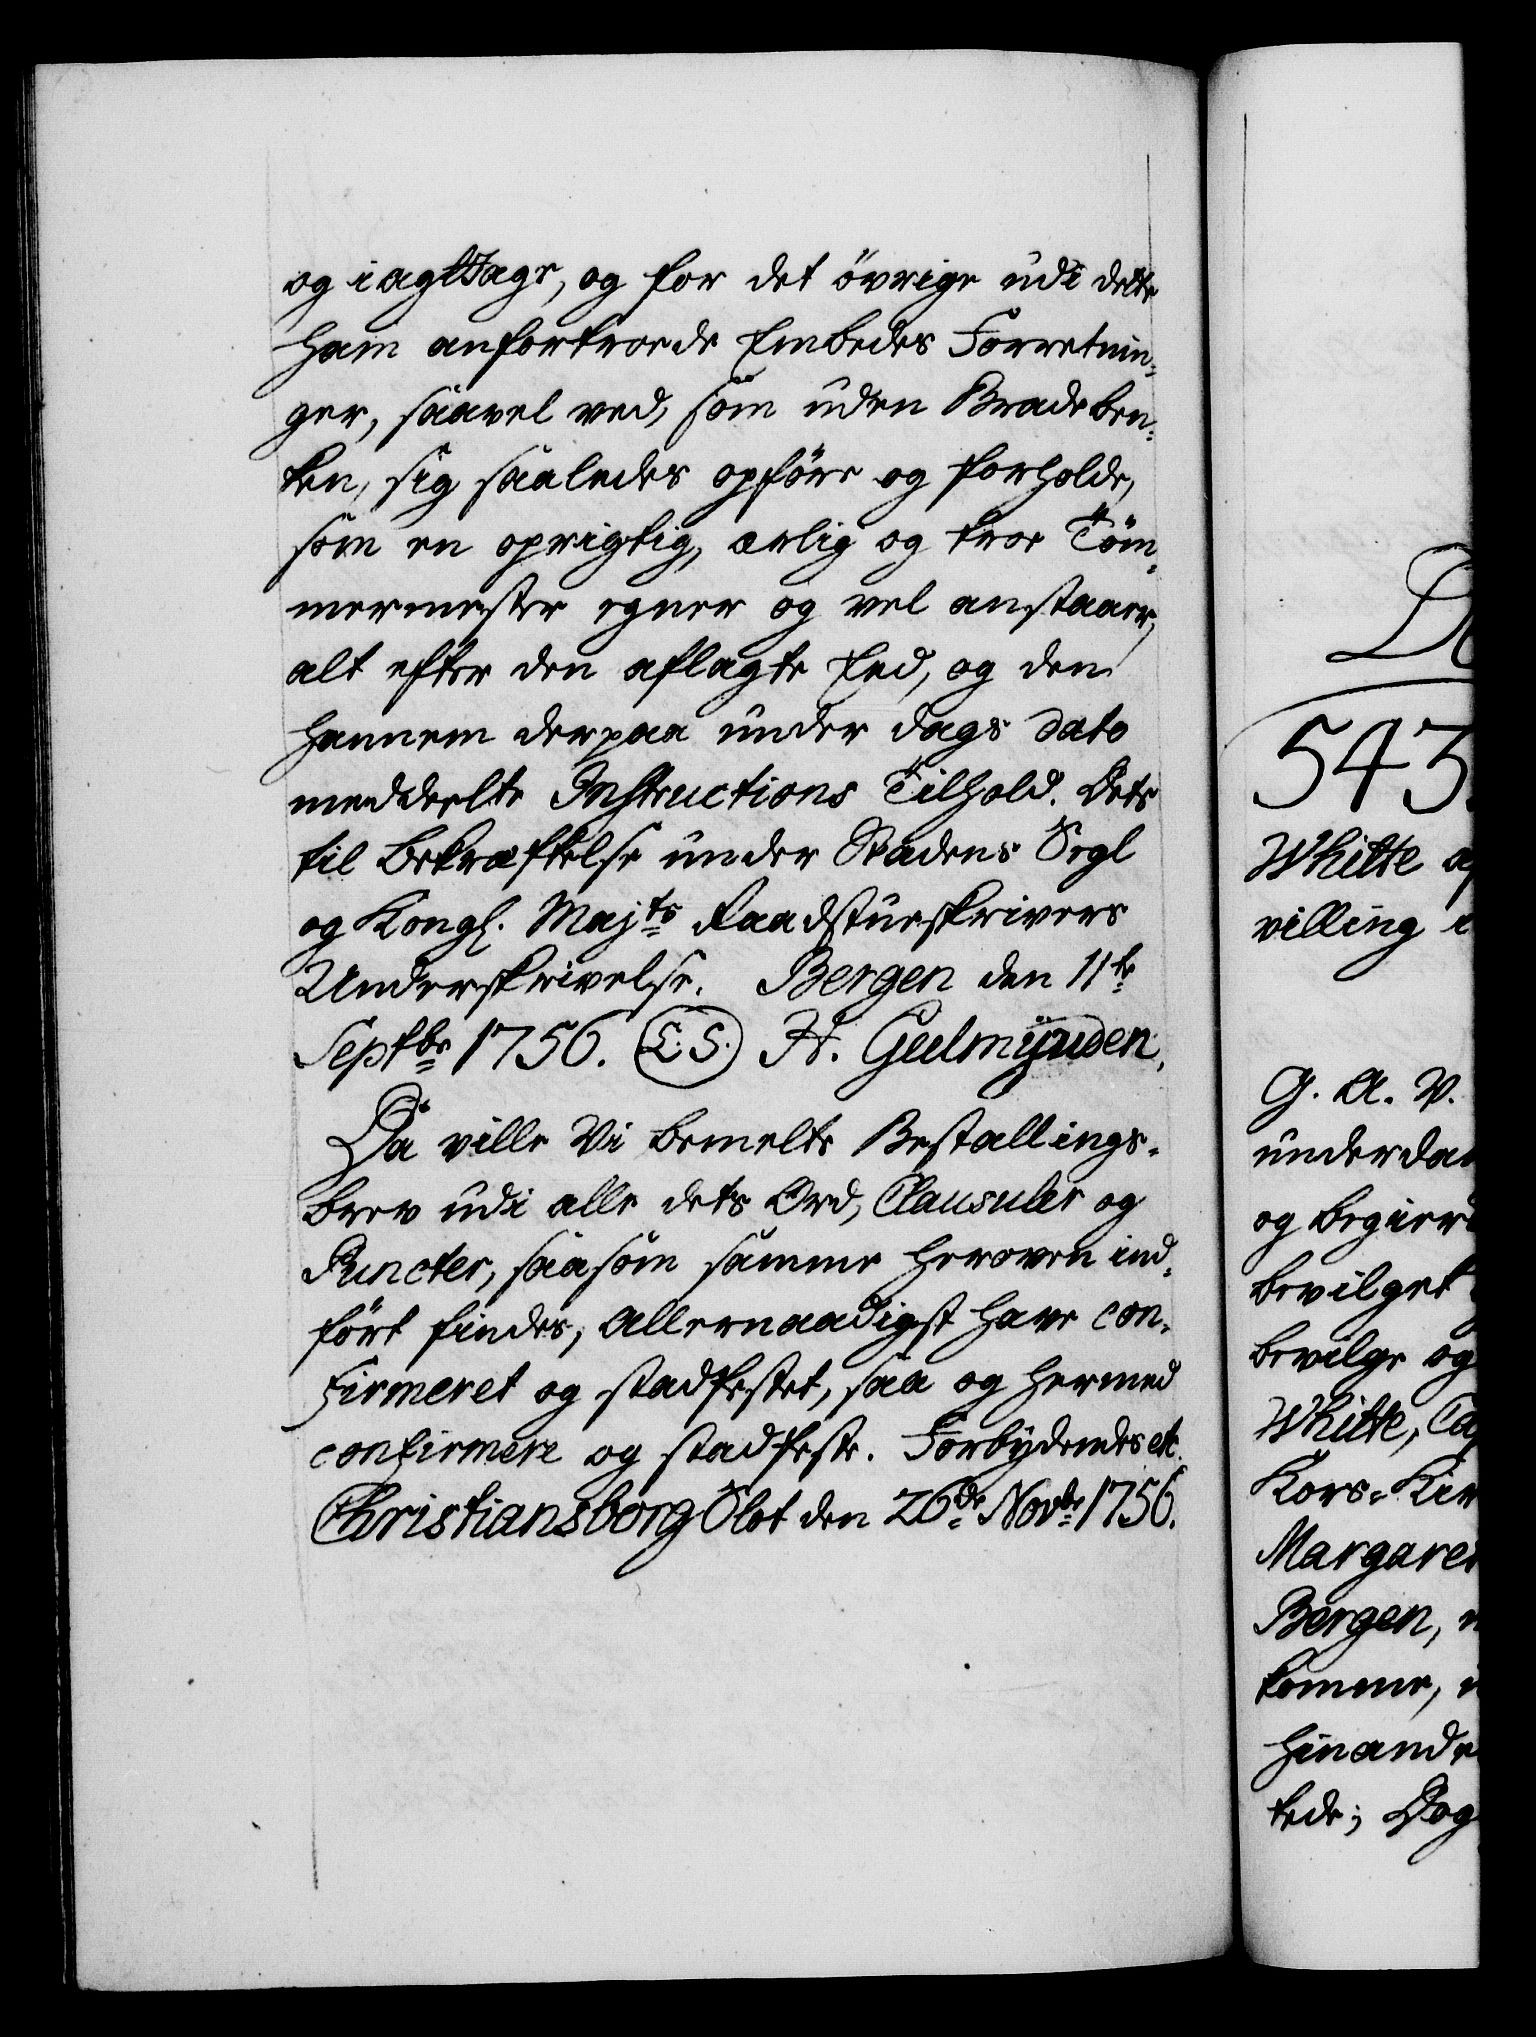 og iagttage, og for det övrige udi dette
ham anfortroede Embedes Forretnin,
ger, saavel ved, som uden Bradeben,
ken, sig saaledes opföre og forholde,
som en oprigtig, ærlig og troe Töm,
mermester egner og vel anstaaer,
alt efter den aflagte Eed, og den
hannem derpaa under dags dato
meddeelte Instructions Tilhold. Dets
til Bekræftelse under Stadens Segl
og Kongl. Majts Raadstueskrivers
Underskrivelse. Bergen den 11te
Septbr 1756. (L.S.) H. Geelmÿuden.
Da ville Vi bemelte Bestallings-
brev udi alle dets Ord, Clausuler og
Puncter, saasom samme heroven ind-
fört findes, Allernaadigst have con-
firmeret og stadfestet, saa og hermed
confirmere og stadfeste. Forbydendes etc.
Christiansborg Slot den 26de Novbr 1756.
543.
Whitte
villing
G. A. V.
og
bevilget
bevilge og
Whitte,
Kors-Kir
Bergen,
komme,
tede; Dog